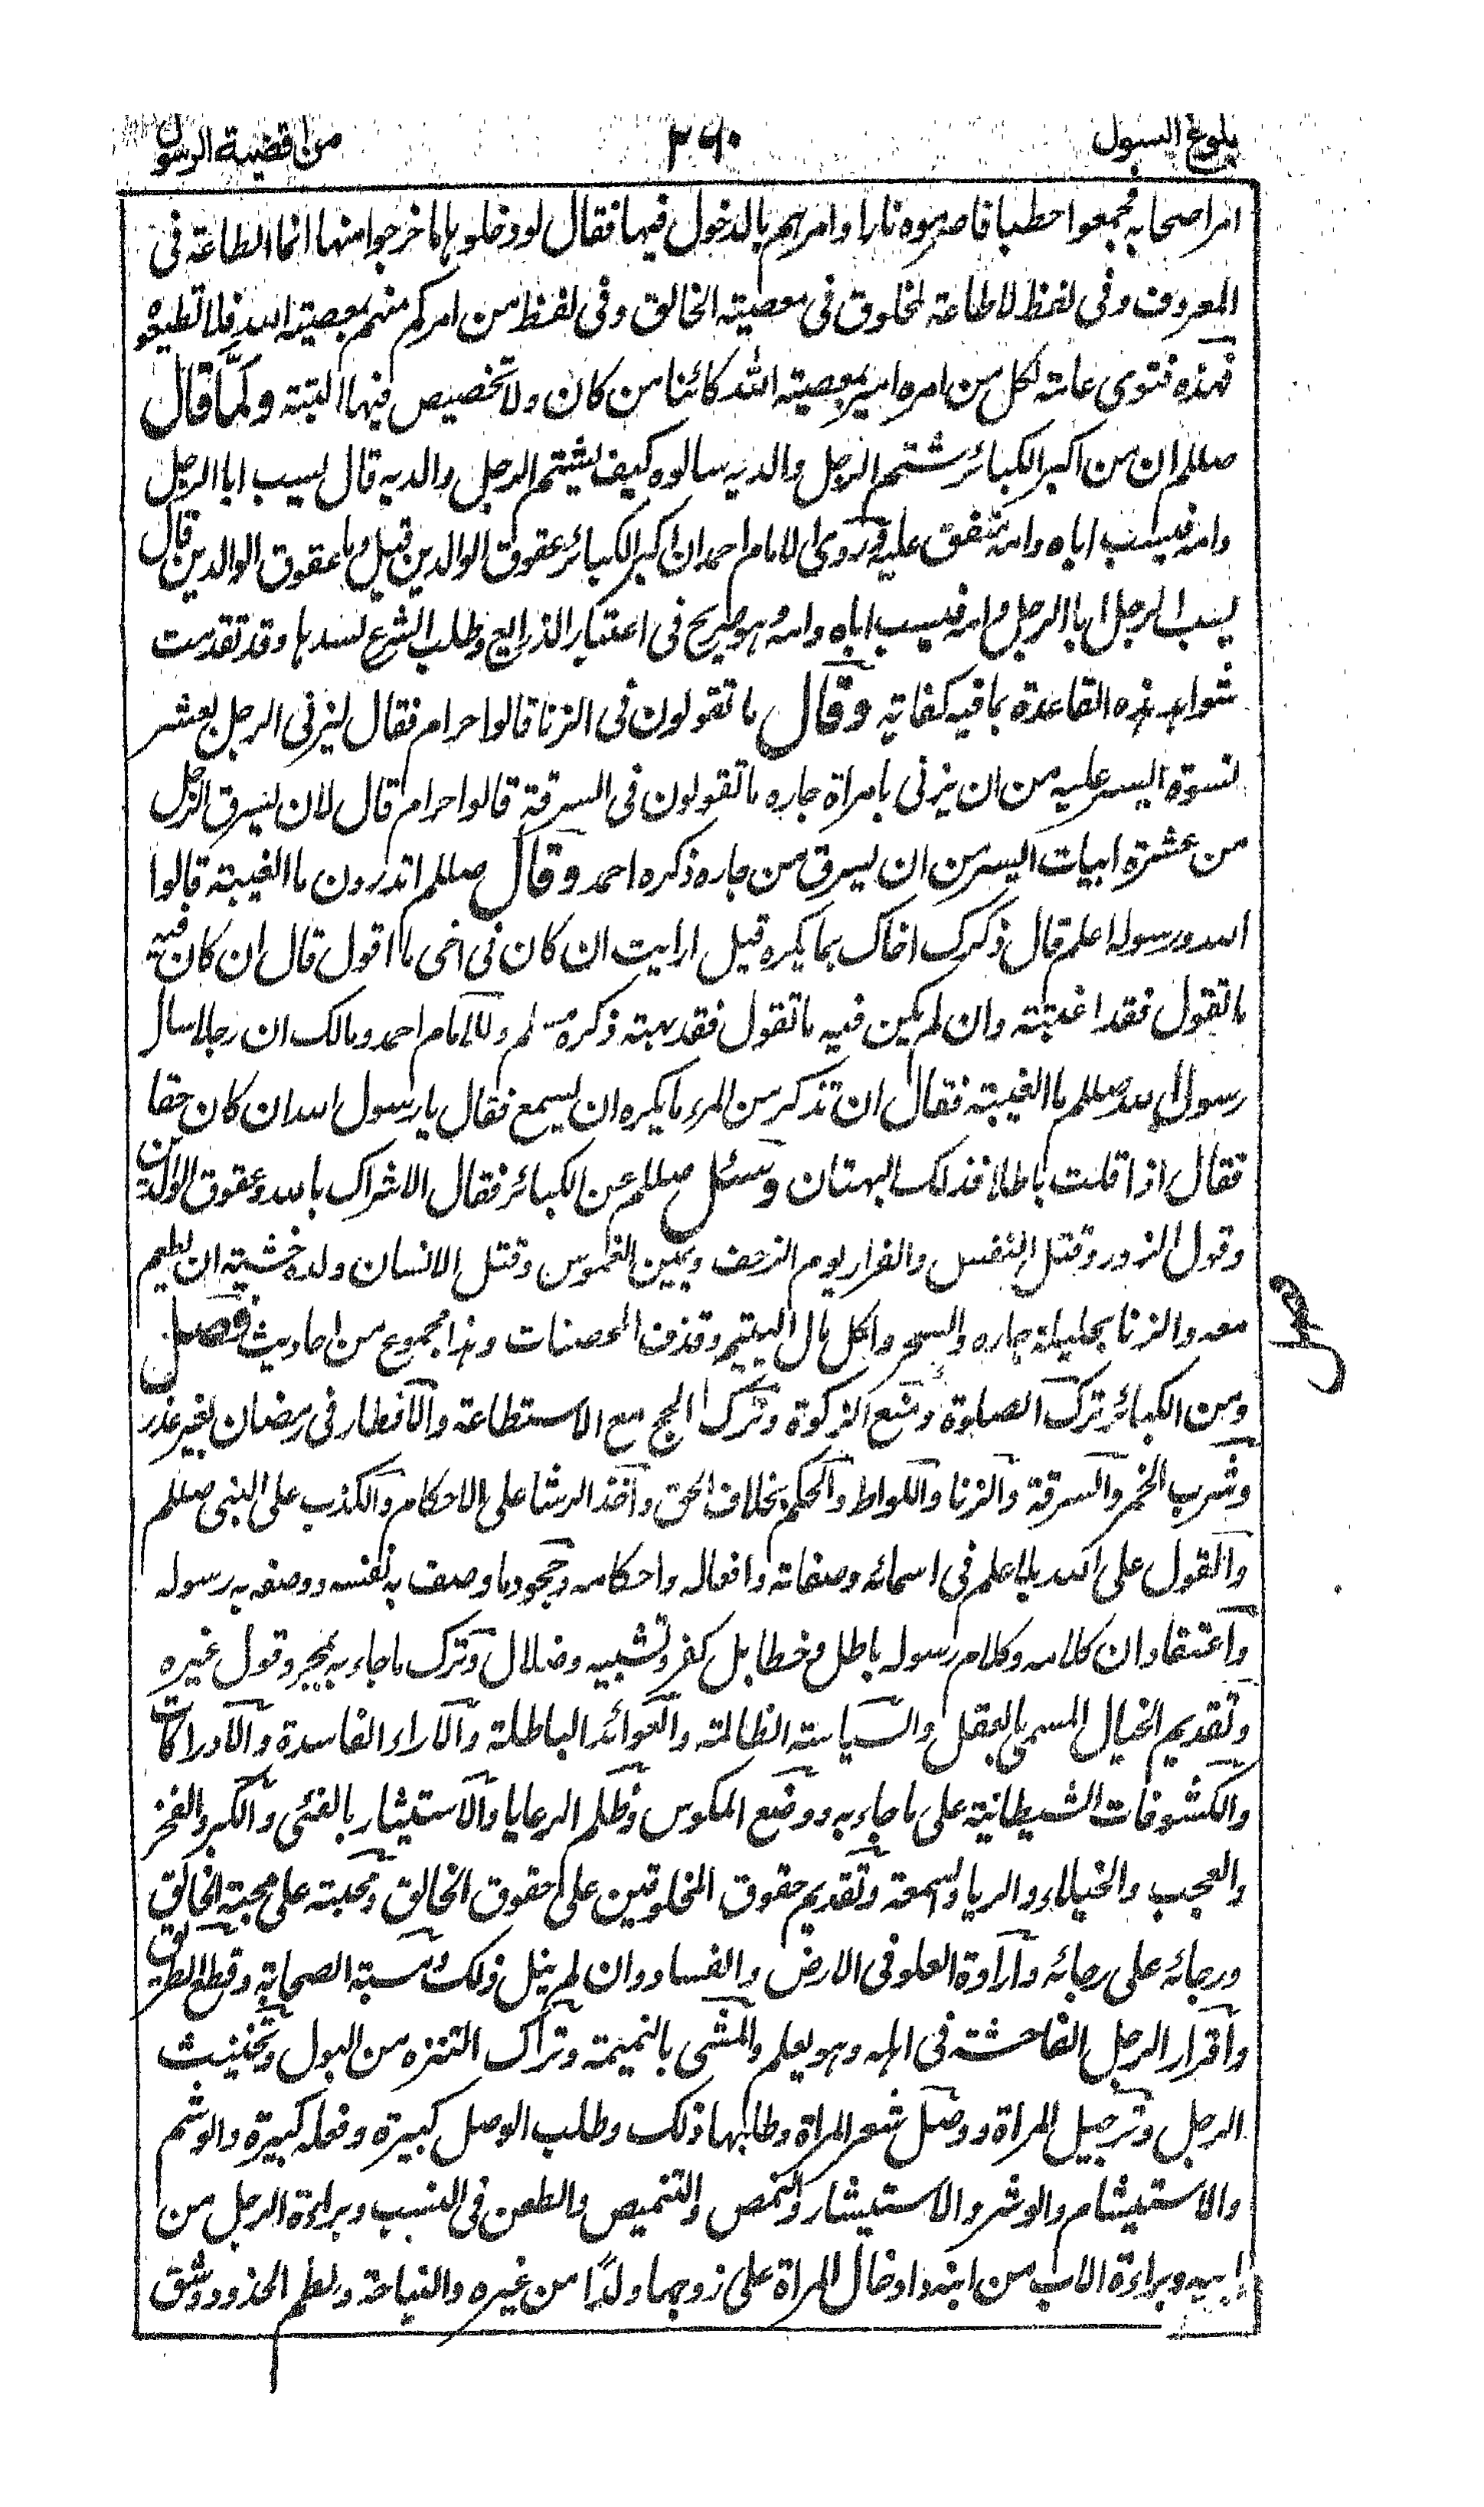 بلوغ السول ٢٦٠ من اقضية الرسول
امر اصحابه فجمعوا حطبا فاضرموه نارا وامرهم بالدخول فيها فقال لو دخلوها لما خرجوا منها انما الطاعة فى
المعروف وفى لفظ لا طاعة لمخلوق فى معصية الخالق وفى لفظ من امركم منهم بمعصية الله فلا تطيعوه
فهذه فتوى عامة لكل من امره امير بمعصية الله كائنا من كان ولا تخصيص فيها البتة ولمَّا قال
صللم ان من اكبر الكبائر شتم الرجل والديه سالوه كيف يشتم الرجل والديه قال يسب ابا الرجل
وامه فيسب اباه وامه متفق عليه وروى الامام احمد ان اكبر الكبائر عقوق الوالدين قيل وما عقوق الوالدين قال
يسب الرجل ابا الرجل وامه فيسب اباه وامه وهو صريح فى اعتبار الذرايع وطلب الشرع لسدها وقد تقدمت
شواهد هذه القاعدة بما فيه كفاية وقال ما تقولون فى الزنا قالوا حرام فقال ليزنى الرجل بعشر
نسوة ايسر عليه من ان يزنى بامراة جاره ما تقولون فى السرقة قالوا حرام قال لان يسرق الرجل
من عشرة ابيات ايسر من ان يسرق من جاره ذكره احمد وقال صللم اتدرون ما الغيبة قالوا
الله ورسوله اعلم قال ذكرك اخاك بما يكره قيل ارايت ان كان فى اخى ما اقول قال ان كان فيه
ما تقول فقد اغتبته وان لم يكن فيه ما تقول فقد بهته ذكره مسلم وللامام احمد ومالك ان رجلا سال
رسول الله صللم ما الغيبة فقال ان تذكر من المرء ما يكره ان يسمع فقال يا رسول الله ان كان حقا
فقال اذا قلت باطلا فذلك البهتان وسئل صللم عن الكبائر فقال الاشراك بالله وعقوق الوالدين
وقول الزور وقتل النفس والفرار يوم الزحف ويمين الغموس وقتل الانسان ولده خشية ان يطعم
معه والزنا بحليلة جاره والسحر واكل مال اليتيم وقذف المحصنات وهذا مجموع من احاديث فصل
ومن الكبائر ترك الصلوة ومنع الزكوة وترك الحج مع الاستطاعة والافطار فى رمضان بغير عذر
وشرب الخمر والسرقة والزنا واللواط والحكم بخلاف الحق واخذ الرشا على الاحكام والكذب على النبى صللم
والقول على الله بلا علم فى اسمائه وصفاته وافعاله واحكامه وجحود ما وصف به نفسه ووصفه به رسوله
واعتقاد ان كلامه وكلام رسوله باطل وخطا بل كفر وتشبيه وضلال وترك ما جاء به لمجرد قول غيره
وتقديم الخيال المسمى بالعقل والسياسة الظالمة والعوائد الباطلة والآراء الفاسدة والادراكات
والكشوفات الشيطانية على ما جاء به ووضع المكوس وظلم الرعايا والاستيثار بالفئى والكبر والفخر
والعجب والخيلاء والريا والسمعة وتقديم حقوق المخلوقين على حقوق الخالق ومحبته على محبة الخالق
ورجائه على رجائه وارادة العلو فى الارض والفساد وان لم ينل ذلك ومسبة الصحابة وقطع الطريق
واقرار الرجل الفاحشة فى اهله وهو يعلم والمشى بالنميمة وترك التنزه من البول وتخنيث
الرجل وترجيل المراة ووصل شعر المراة وطلبها ذلك وطلب الوصل كبيرة وفعله كبيرة والوشم
والاستيشام والوشر والاستيشار والنمص والتنميص والطعن فى النسب وبراءة الرجل من
ابيه وبراءة الاب من ابنه وادخال المراة على زوجها ولدًا من غيره والنياحة ولطم الخدود وشق
فصل